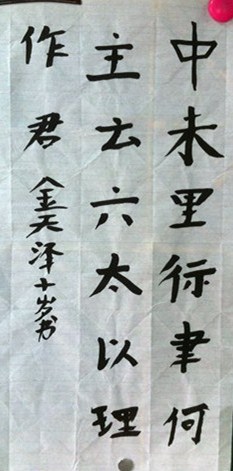 中未里行聿何
主云六太以理
作君
金天泽十岁书